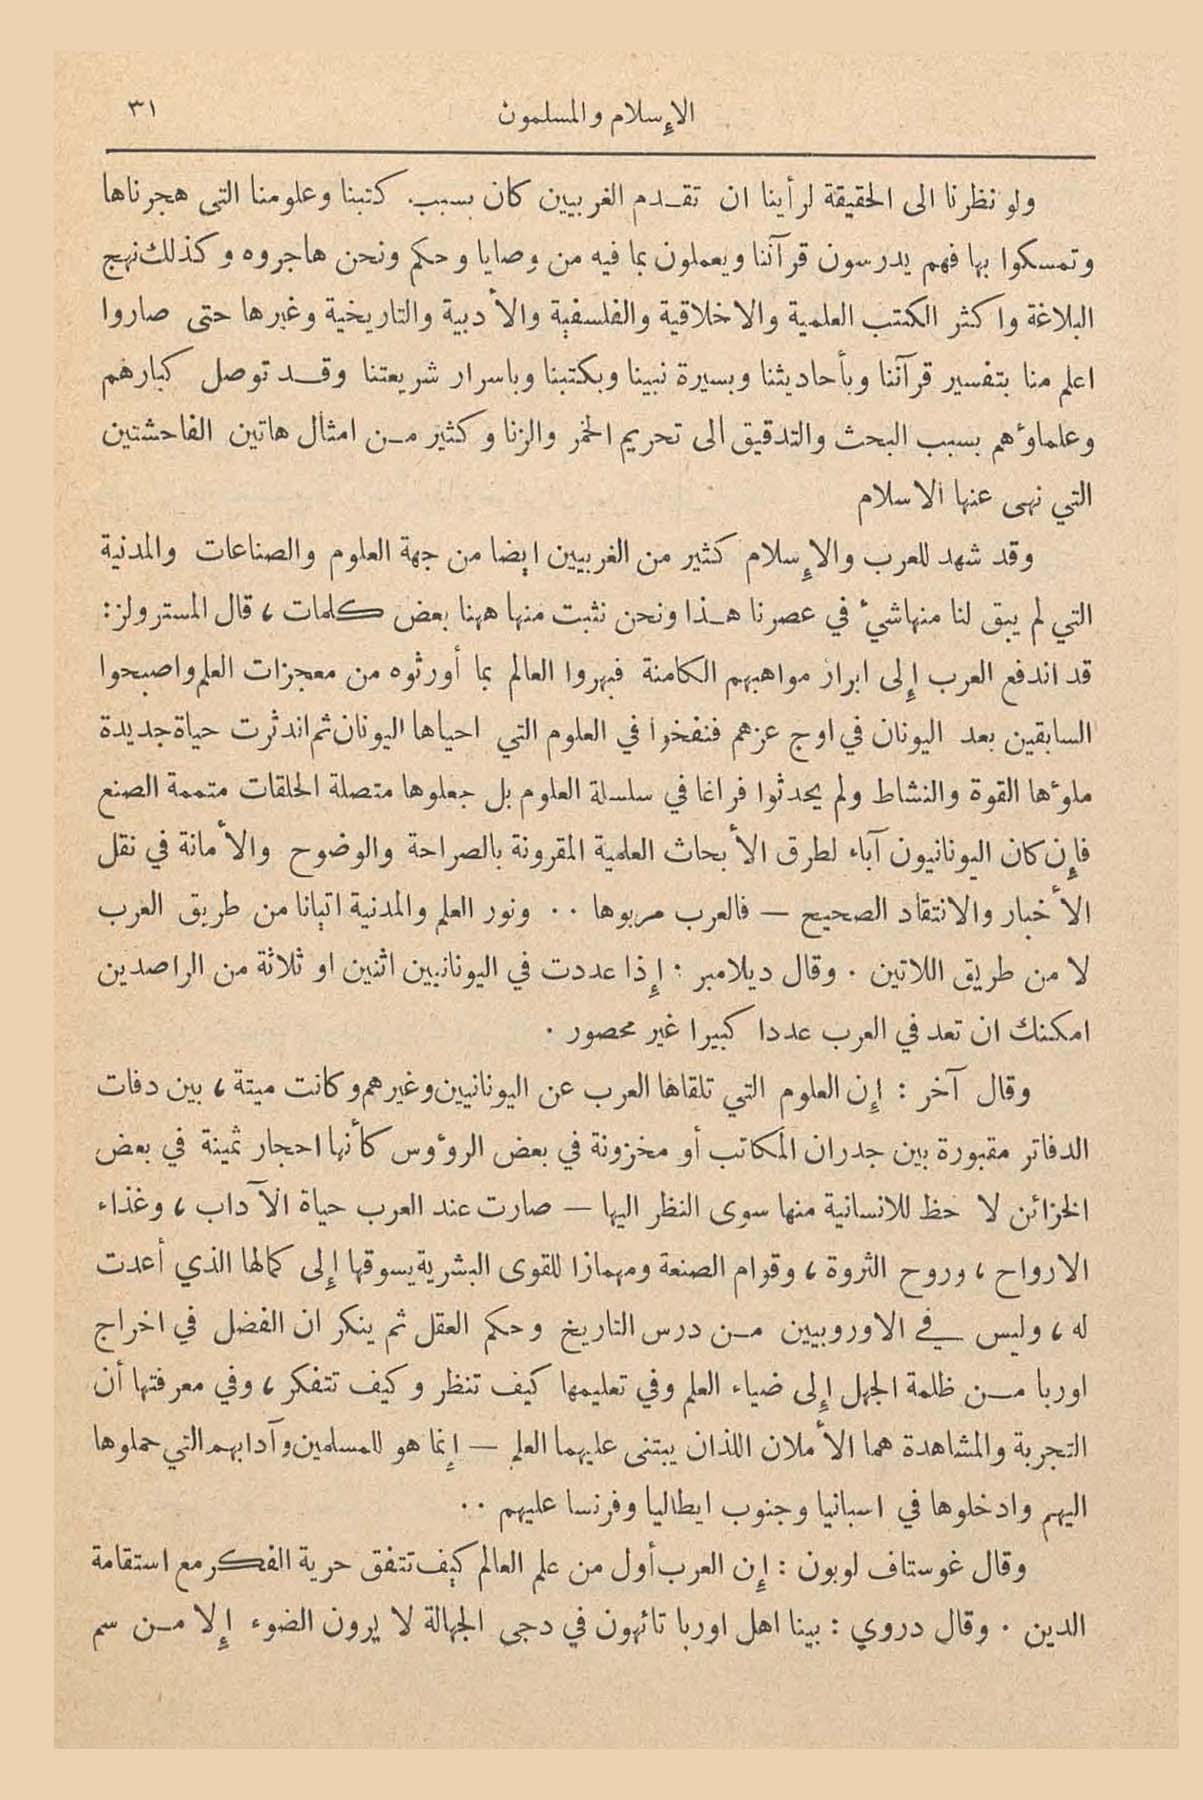 الإسلام والمسلمون ٣١
ولو نظرنا الى الحقيقة لرأينا ان تقـدم الغربيين كان بسبب. كتبنا وعلومنا التى هجرناها
وتمسكوا بها فهم يدرسون قرآننا ويعملون بما فيه من وصايا وحكم ونحن هاجروه وكذلك نهج
البلاغة واكثر الكتب العلمية والاخلاقية والفلسفية والأدبية والتاريخية وغيرها حتى صاروا
اعلم منا بتفسير قرآننا وبأحاديثنا وبسيرة نبينا وبكتبنا وباسرار شريعتنا وقـد توصل كبارهم
وعلماؤهم بسبب البحث والتدقيق الى تحريم الخمر والزنا وكثير مـن امثال هاتين الفاحشتين
التي نهى عنها الاسلام
وقد شهد للعرب والإسلام كثير من الغربيين ايضا من جهة العلوم والصناعات والمدنية
التي لم يبق لنا منها شيء في عصرنا هـذا ونحن نثبت منها ههنا بعض كلمات ، قال المسترولز :
قد اندفع العرب إلى ابراز مواهبهم الكامنة فبهروا العالم بما أورثوه من معجزات العلم واصبحوا
السابقين بعد اليونان في اوج عزهم فنفخوا في العلوم التي احياها اليونان ثم اندثرت حياة جديدة
ملؤها القوة والنشاط ولم يحدثوا فراغا في سلسلة العلوم بل جعلوها متصلة الحلقات متممة الصنع
فإن كان اليونانيون آباء لطرق الأبحاث العلمية المقرونة بالصراحة والوضوح والأمانة في نقل
الأخبار والانتقاد الصحيح — فالعرب مربوها . . ونور العلم والمدنية اتيانا من طريق العرب
لا من طريق اللاتين . وقال ديلامبر : إذا عددت في اليونانيين اثنين او ثلاثة من الراصدين
امكنك ان تعد في العرب عددا كبيرا غير محصور .
وقال آخر : إن العلوم التي تلقاها العرب عن اليونانيين وغيرهم وكانت ميتة ، بين دفات
الدفاتر مقبورة بين جدران المكاتب أو مخزونة في بعض الرؤوس كأنها احجار ثمينة في بعض
الخزائن لا حظ للانسانية منها سوى النظر اليها — صارت عند العرب حياة الآداب ، وغذاء
الارواح ، وروح الثروة ، وقوام الصنعة ومهمازا للقوى البشرية يسوقها إلى كمالها الذي أعدت
له ، وليس في الاوروبيين مـن درس التاريخ وحكم العقل ثم ينكر ان الفضل في اخراج
اوربا مـن ظلمة الجهل إلى ضياء العلم وفي تعليمها كيف تنظر وكيف تتفكر ، وفي معرفتها أن
التجربة والمشاهدة هما الأملان اللذان يبتنى عليهما العلم — إنما هو للمسلمين وآدابهم التي حملوها
اليهم وادخلوها في اسبانيا وجنوب ايطاليا وفرنسا عليهم . .
وقال غوستاف لوبون : إن العرب أول من علم العالم كيف تتفق حرية الفكر مع استقامة
الدين . وقال دروي : بينا اهل اوربا تائهون في دجى الجهالة لا يرون الضوء إلا مـن سم